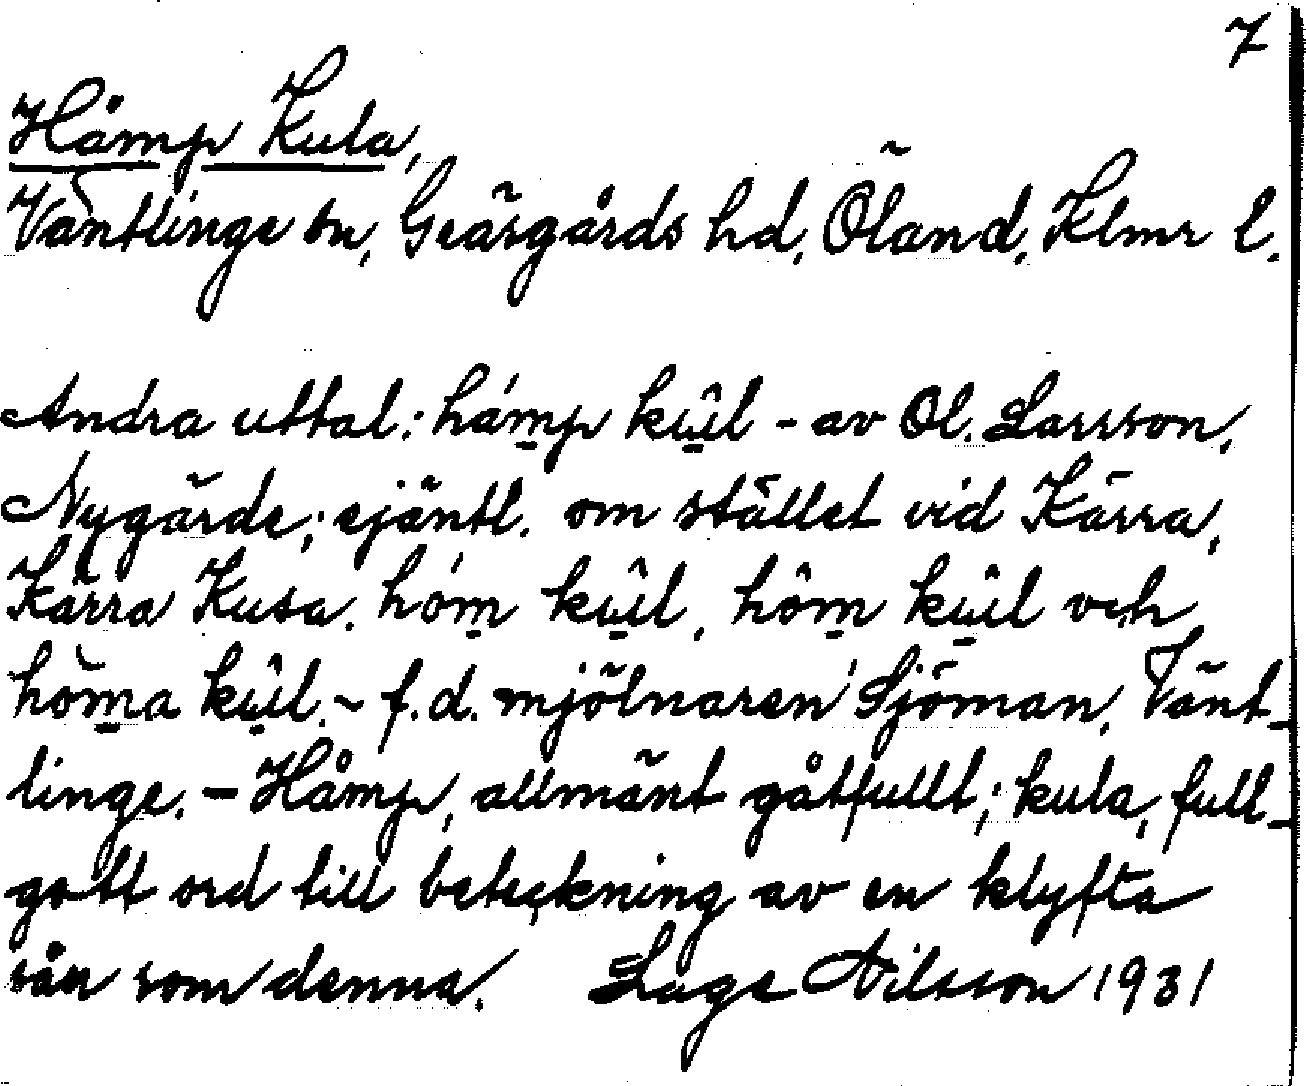 7
Håmp Kula,
Väntlinge sn, Gräsgårds hd, Öland, Klmr l.
Andra uttal: hámp kûl - av Ol. Larsson,
Nygärde; ejäntl. om stället vid Kärra,
Kärra Kusa. hóm kûl, hôm kûl och
hòma kûl. - f.d. mjölnaren Sjöman, Vänt-
linge. - Håmp, allmänt gåtfullt; kula, full-
gott ord till beteckning av en klyfta
sån som denna. Lage Nilsson 1931